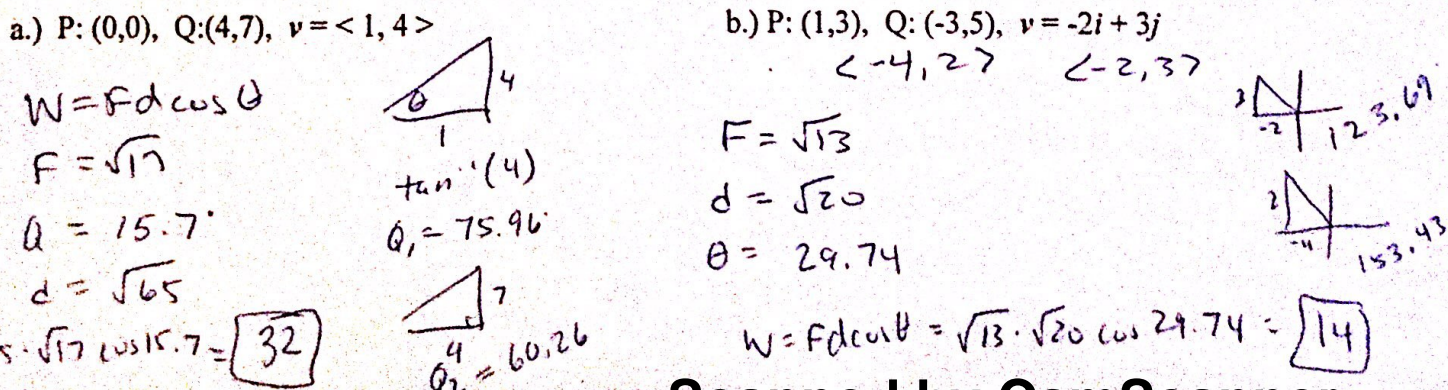 a.) P: (0,0), Q:(4,7), v = < 1, 4 >
W = Fd cos θ
F = √17
θ = 15.7°
d = √65
· √17 cos 15.7 = 32
θ
4
1
tan⁻¹(4)
θ₁ = 75.96°
7
4
θ₂ = 60.26
b.) P: (1,3), Q: (-3,5), v = -2i + 3j
<-4, 2> <-2, 3>
F = √13
d = √20
θ = 29.74
W = Fd cos θ = √13 · √20 cos 29.74 = 14
3
-2
123.69
2
-4
153.43